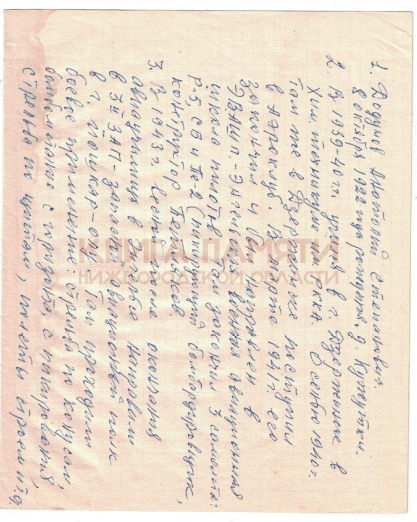 1. Додинов Анатолий Степанович
8 октября 1922 года рожд. д.
2. В 1939-40 г. учёба в г. Дзержинске в
Хим. техникуме. Осенью 1940 г.
там же в Дзержинске поступил
в аэроклуб. В марте 1941 г. его
закончил и был направлен в
ЭВАШП - Энгельсская военная авиационная
школа пилотов. Закончил 3 самолёта:
Р-5, СБ и Пе-2 (пикирующий бомбардировщик,
конструктор Петляков
3. В 1943 г. после окончания
авиаучилища направили
в ЗАП - запасной авиационный полк
в г. Йошкар-Ола. Там проходили
боевое применение: стрельба по конусам,
бомбометание с пикирования,
стрельба по щитам, полёты строем и т.д.
КНИГА ПАМЯТИ
НИЖЕГОРОДСКОЙ ОБЛАСТИ